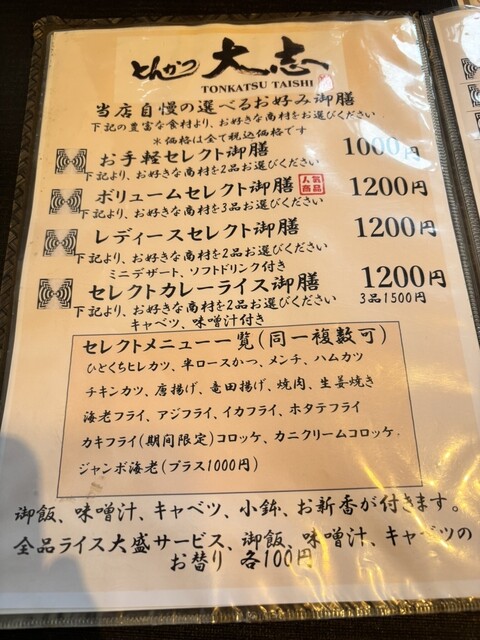 とんかつ 大志
TONKATSU TAISHI
当店自慢の選べるお好み御膳
下記の豊富な食材より、お好きな商材をお選びください
※価格は全て税込価格です
お手軽セレクト御膳 1000円
下記より、お好きな商材を2品お選びください
ボリュームセレクト御膳 人気商品 1200円
下記より、お好きな商材を3品お選びください
レディースセレクト御膳 1200円
下記より、お好きな商材を2品お選びください
ミニデザート、ソフトドリンク付き
セレクトカレーライス御膳 1200円
下記より、お好きな商材を2品お選びください 3品1500円
キャベツ、味噌汁付き
セレクトメニュー一覧(同一複数可)
ひとくちヒレカツ、半ロースかつ、メンチ、ハムカツ
チキンカツ、唐揚げ、竜田揚げ、焼肉、生姜焼き
海老フライ、アジフライ、イカフライ、ホタテフライ
カキフライ(期間限定)コロッケ、カニクリームコロッケ
ジャンボ海老(プラス1000円)
御飯、味噌汁、キャベツ、小鉢、お新香が付きます。
全品ライス大盛サービス、御飯、味噌汁、キャベツの
お替り 各100円